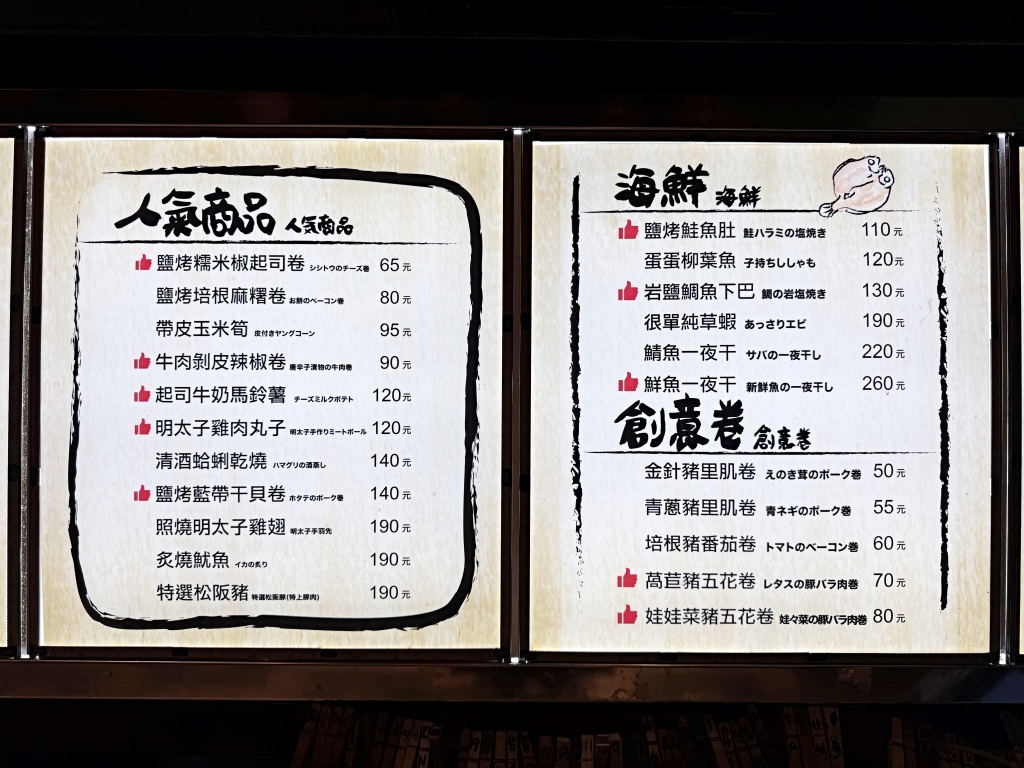 人氣商品 人気商品
鹽烤糯米椒起司卷 シシトウのチーズ巻 65元
鹽烤培根麻糬卷 お餅のベーコン巻 80元
帶皮玉米筍 皮付きヤングコーン 95元
牛肉剝皮辣椒卷 唐辛子漬物の牛肉巻 90元
起司牛奶馬鈴薯 チーズミルクポテト 120元
明太子雞肉丸子 明太子手作りミートボール 120元
清酒蛤蜊乾燒 ハマグリの酒蒸し 140元
鹽烤藍帶干貝卷 ホタテのポーク巻 140元
照燒明太子雞翅 明太子手羽先 190元
炙燒魷魚 イカの炙り 190元
特選松阪豬 特選松阪豚(特上豚肉) 190元
海鮮 海鮮
鹽烤鮭魚肚 鮭ハラミの塩焼き 110元
蛋蛋柳葉魚 子持ちししゃも 120元
岩鹽鯛魚下巴 鯛の岩塩焼き 130元
很單純草蝦 あっさりエビ 190元
鯖魚一夜干 サバの一夜干し 220元
鮮魚一夜干 新鮮魚の一夜干し 260元
創意卷 創意巻
金針豬里肌卷 えのき茸のポーク巻 50元
青蔥豬里肌卷 青ネギのポーク巻 55元
培根豬番茄卷 トマトのベーコン巻 60元
萵苣豬五花卷 レタスの豚バラ肉巻 70元
娃娃菜豬五花卷 娃々菜の豚バラ肉巻 80元